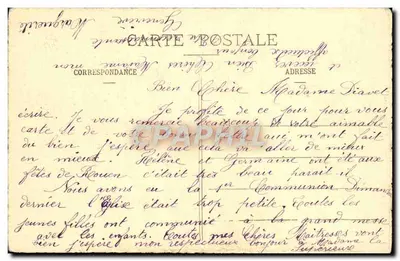 CARTE POSTALE
CORRESPONDANCE
ADRESSE
Bien Chère Madame
Je profite de ce jour pour vous
écrire. Je vous remercie beaucoup votre aimable
carte et de vo qui m'ont fait
du bien, j'espère que cela va aller de mieux
en mieux. Hélène et Germaine ont été aux
fêtes de Rouen c'était très beau parait il
Nous avons eu la 1er Communion Dimanche
dernier l'Eglise était trop petite. Toutes les
jeunes filles ont communié à la grand messe
avec les enfants. Toutes mes Chères Maîtresses vont
bien j'espère, mon respectueux bonjour à Madame la
Supérieure
et recevez bien Chère Madame mon
affectueux bonjour
Votre
Genevieve
Marguerite